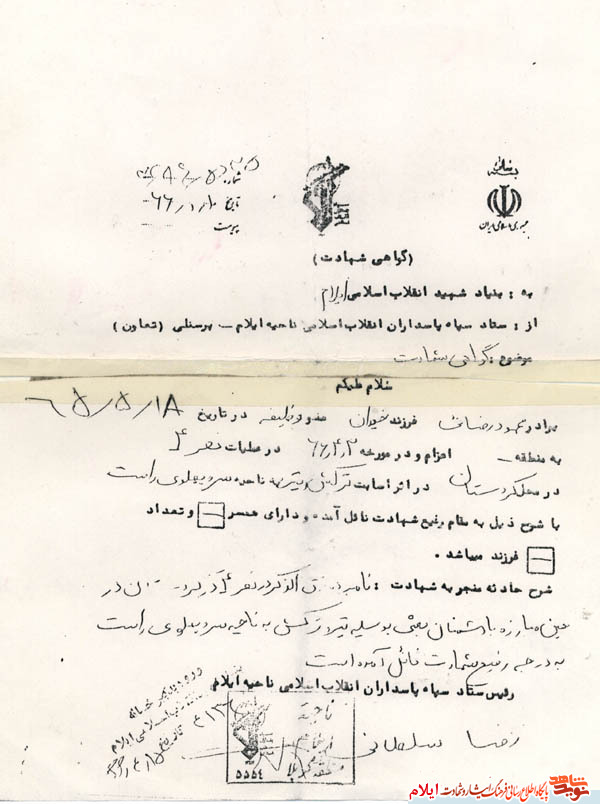 بسمه تعالی
جمهوری اسلامی ایران
شماره
تاریخ
پیوست
(گواهی شهادت)
به : بنیاد شهید انقلاب اسلامی ایلام
از : ستاد سپاه پاسداران انقلاب اسلامی ناحیه ایلام – پرسنلی (تعاون)
موضوع : گواهی شهادت
سلام علیکم
برادر فرزند عضو وظیفه در تاریخ ۶۵/۵/۱۸
به منطقه – اعزام و در مورخه ۶۶/۴/۲ در عملیات نصر ۴
در محل کردستان در اثر اصابت ترکش و تیر به ناحیه سر و پهلوی راست
با شرح ذیل به مقام رفیع شهادت نائل آمده و دارای همسر – و تعداد
– فرزند میباشد .
شرح حادثه منجر به شهادت : نامبرده فوق الذکر در نصر ۴ در
عین مبارزه با دشمنان بعثی بوسیله تیر و ترکش به ناحیه سر و پهلوی راست
به درجه رفیع شهادت نائل آمده است
رئیس ستاد سپاه پاسداران انقلاب اسلامی ناحیه ایلام
رضا سلطانی
ناحیه
۵۵۵۴
ورود بدبیرخانه
اسلامی ایلام
تاریخ
نوید شاهد
پایگاه اطلاع رسانی فرهنگ ایثار و شهادت ایلام